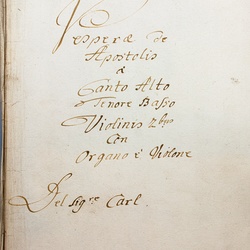 Vesperæ de
Apostolis
à
Canto Alto
Tenore Basso
Violinis 2bus
Con
Organo è Violone
Del Sigre Carl.